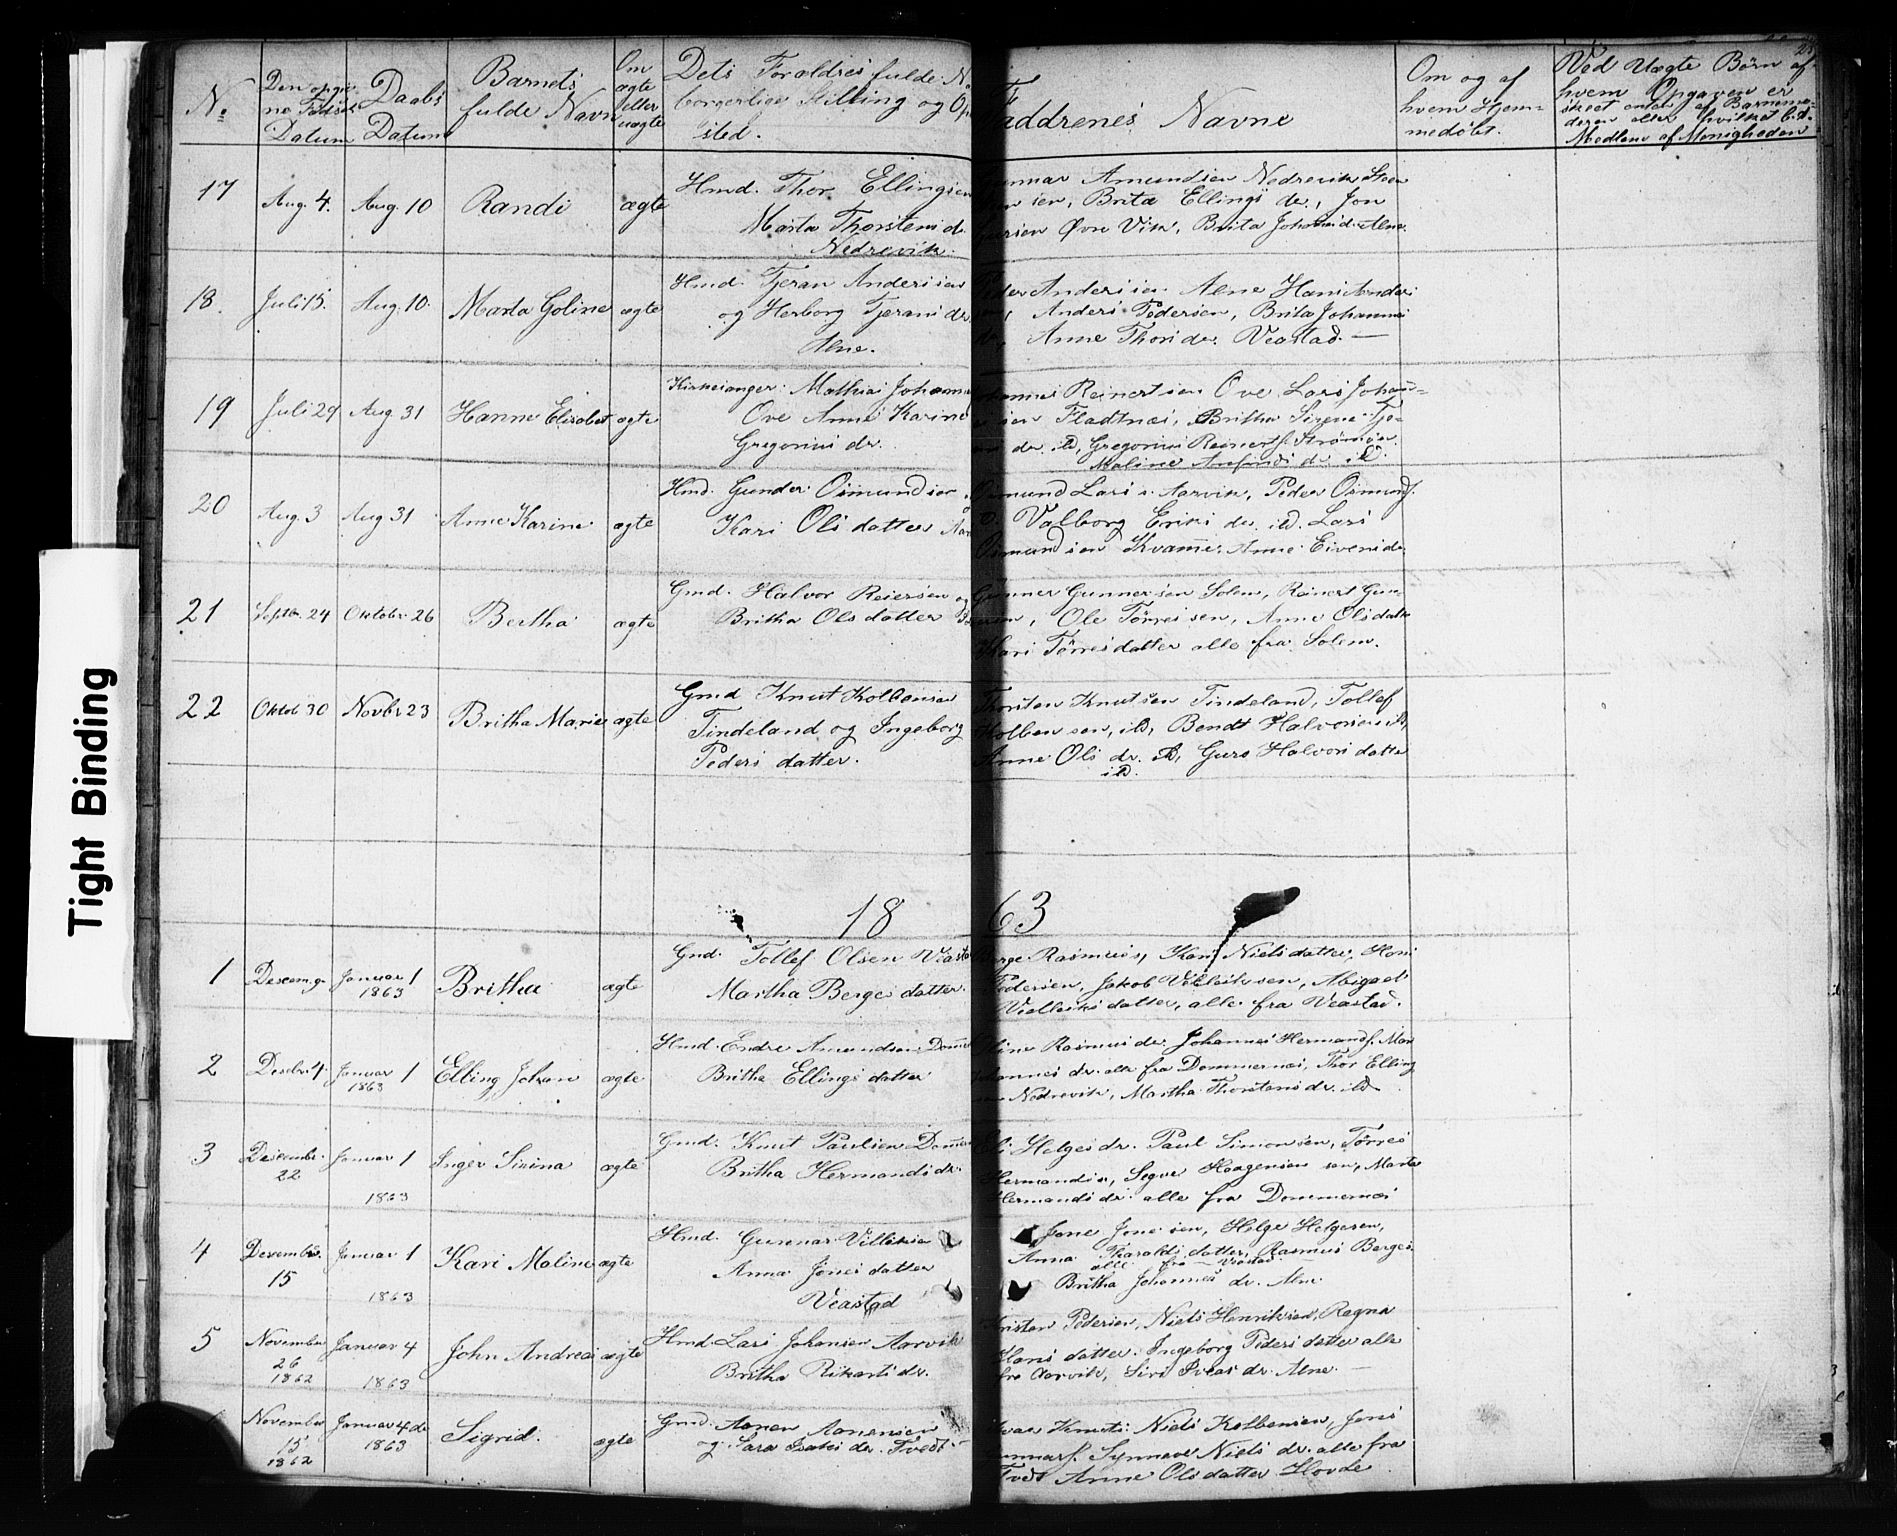 Tight Binding
No.
Den opgivne Fødsels Datum
Daabs Datum
Barnets fulde Navn
Om ægte eller uægte
Dets Forældres fulde N
borgerlige Stilling og Op
sted.
Faddrenes Navne
Om og af
hvem Hjem-
medøbt.
Ved Uægte Børn af
hvem Opgaven er
skeet enten af Barnemo-
deren eller hvilket
Medlem af Menigheden
17 Aug. 4. Aug. 10 Randi ægte
Hmd. Thor Ellingsen
Marta Thorstensd.
Nedrevik.
Gunnar Amundsen Nedrevik
sen, Brita Ellings dr., Jon
Øvre Vik, Brita Johannisd. Alne
18. Juli 15. Aug. 10. Marta Goline ægte
Hmd. Tjeran Andersen
og Herborg Tjerans dr.
Alne.
Peder Andersen Alne Hans Anders
Anders Pedersen, Brita Johannes
dr. Anne Thors dr. Veastad. —
19 Juli 29 Aug 31 Hanne Elisabet ægte
Kirkesanger Mathias Johanne
Ove Anne Karine
Gregorius dr.
Reinertsen Ove Lars Johan-
sen Fladtnæs, Britha Sirene Tje-
dr. id, Gregorius Reinerts. Strømøen
Maline Anfinds dr. id.
20 Aug. 3 Aug 31 Anne Karine ægte
Hmd. Gunder Osmundsen
Kari Ols datter Aar
Osmund Lars s. Aarvik, Peder Osmunds.
Valborg Eriks dr. id. Lars
Osmundsen Kvamme. Anne Eivens dr.
21 Septbr. 24 Oktobr. 26 Bertha ægte
Gmd. Halvor Reiersen og
Britha Ols datter
Gunner Gunnersen Solem, Reinert Gun-
ersen, Ole Tørressen, Anne Olsdatter
Kari Tørresdatter alle fra Solem.
22 Oktob 30 Novbr 23 Britha Marie ægte
Gmd Knut Kolbensen
Tindeland og Ingeborg
Peders datter.
Thorsten Knutsen Tindeland, Tollef
Kolbensen, id, Bendt Halvorsen id,
Anne Ols dr. id, Guro Halvors datter
id.
18 63
1 Descem. 9 Januar 1 1863 Britha ægte
Gmd. Tollef Olsen Veasta
Martha Berges datter.
Berge Rasmuss, Kari Nielsdatter, Hans
Pedersen, Jakob Villeiksen, Abigael
Veilleiks datter, alle fra Veastad.
2 Desbr. 4. Januar 1 1863 Elling Johan ægte
Hmd. Endre Amundsen Domme
Britha Ellings datter
Oline Rasmus dr. Johannes Hermands. Mar
Johannes dr. alle fra Dommernes, Thor Elling
sen Nedrevik, Martha Thorstens dr. id
3 Descembr. 22 Januar 1 1863 Inger Sirina ægte
Gmd. Knut Paulsen Domme
Britha Hermands dr.
Eli Helges dr. Paul Simonsen, Tørres
Hermands s, Segve Haagensen sen, Marta
Hermands dr. alle fra Dommernes
4 Desembr. 15 Januar 1 1863 Kari Maline ægte
Hmd. Gunnar Villiksen
Anna Jones datter
Veastad
Jone Jonesen, Helge Helgesen,
Anna Tharalds datter, Rasmus Berges.
alle fra Veastad —
Britha Johannes dr. Alne.
5 November 26 1862 Januar 4 1863 John Andreas ægte
Hmd. Lars Johansen Aarvik
Britha Rikarts dr.
Kristen Pedersen, Niels Henriksen, Ragna
Hans datter. Ingeborg Peders datter alle
fra Aarvik, Siri Sveas dr. Alne. —
November 15 1862 Januar 4 de 1863 Sigrid. ægte
Gmd. Aanen Aanensen
og Sara Isaks dr. Tvedt —
Knuts. Niels Kolbensen, Jens
Gunnars. Synneve Niels dr. alle fra
Tvedt Anne Olsdatter Hovde